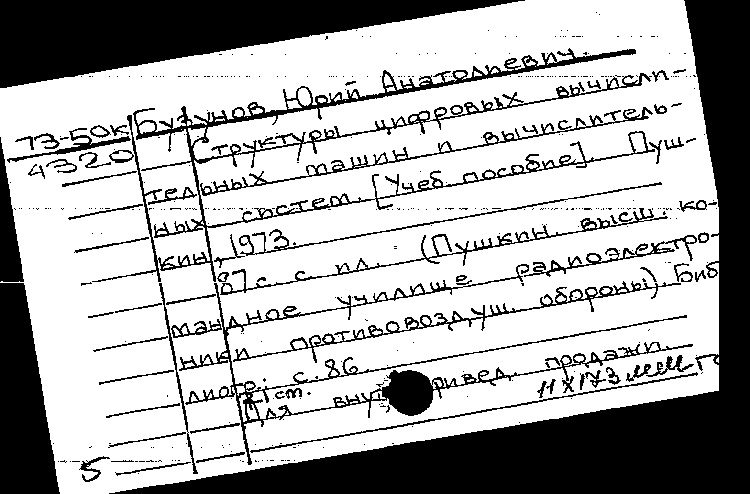 73-50к Бузунов, Юрий Анатолиевич.
4320 Структуры цифровых вычисли-
тельных машин и вычислитель-
ных систем. [Учеб. пособие]. Пуш-
кин, 1973.
87 с. с ил. (Пушкин. высш. ко-
мандное училище радиоэлектро-
ники противовоздуш. обороны). Биб
лиогр.: с. 86.
21 ст.
Для продажи.
11 X173
5